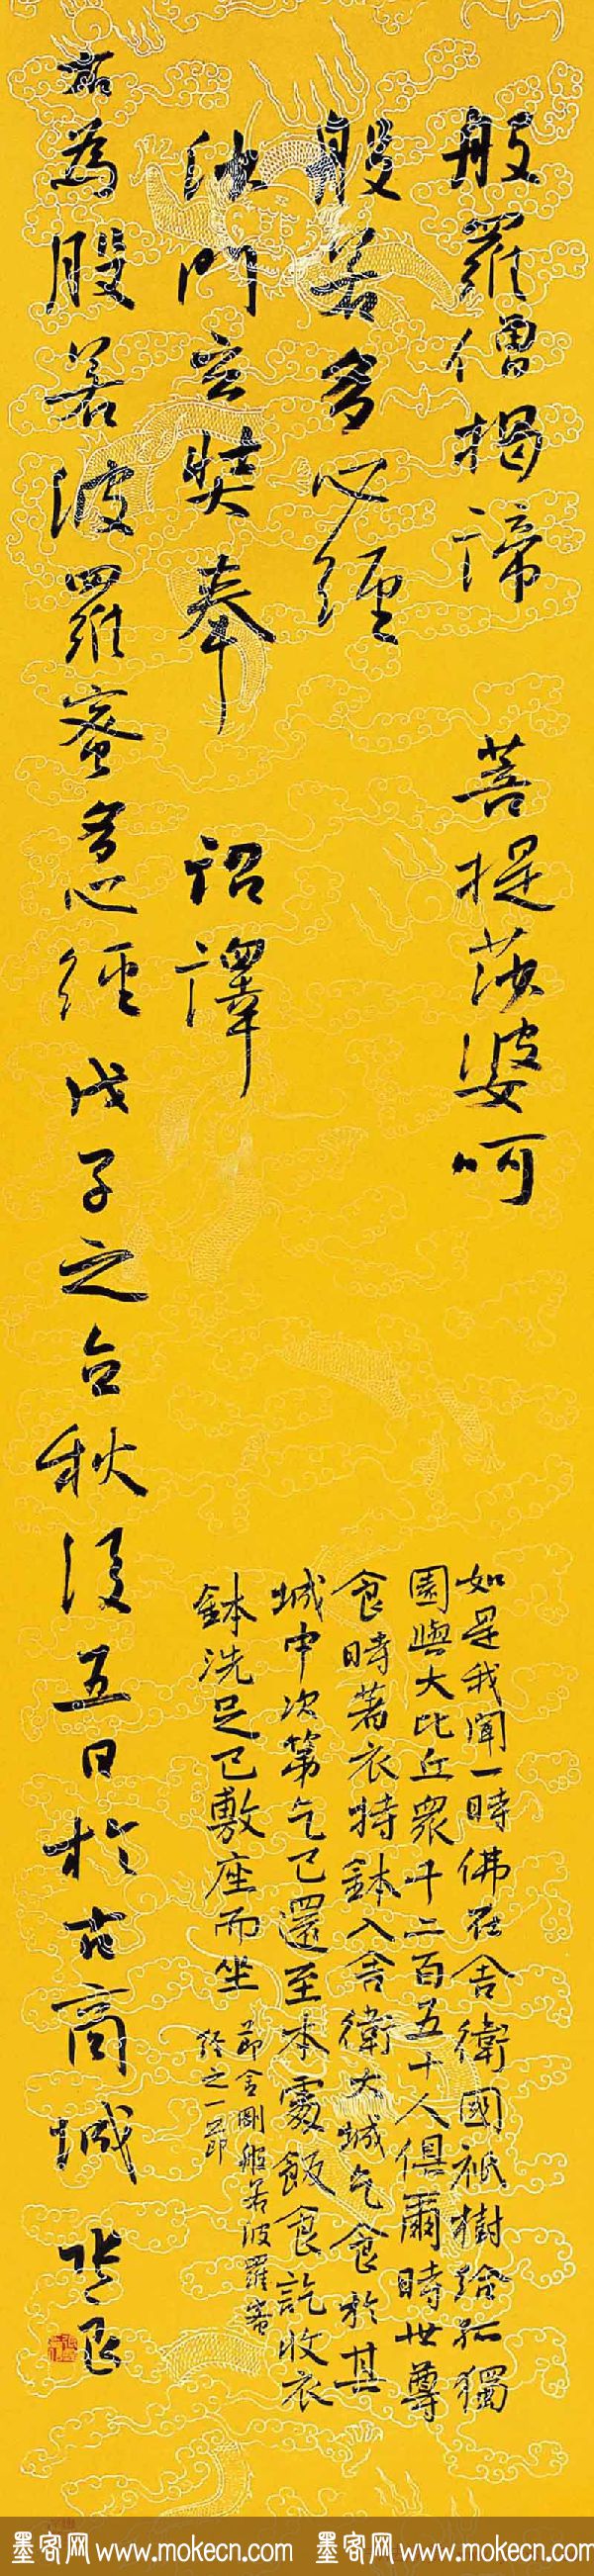 般羅僧揭諦 菩提莎婆呵
般若多心經
沙門玄奘奉 詔譯
如是我聞一時佛在舍衛國祇樹給孤獨
園與大比丘眾千二百五十人俱爾時世尊
食時著衣持鉢入舍衛大城乞食於其
城中次第乞已還至本處飯食訖收衣
鉢洗足已敷座而坐
節金剛般若波羅蜜
經之一節
右為般若波羅蜜多心經 戊子之立秋後五日於古商城
墨客网 www.mokecn.com
墨客网 www.mokecn.com